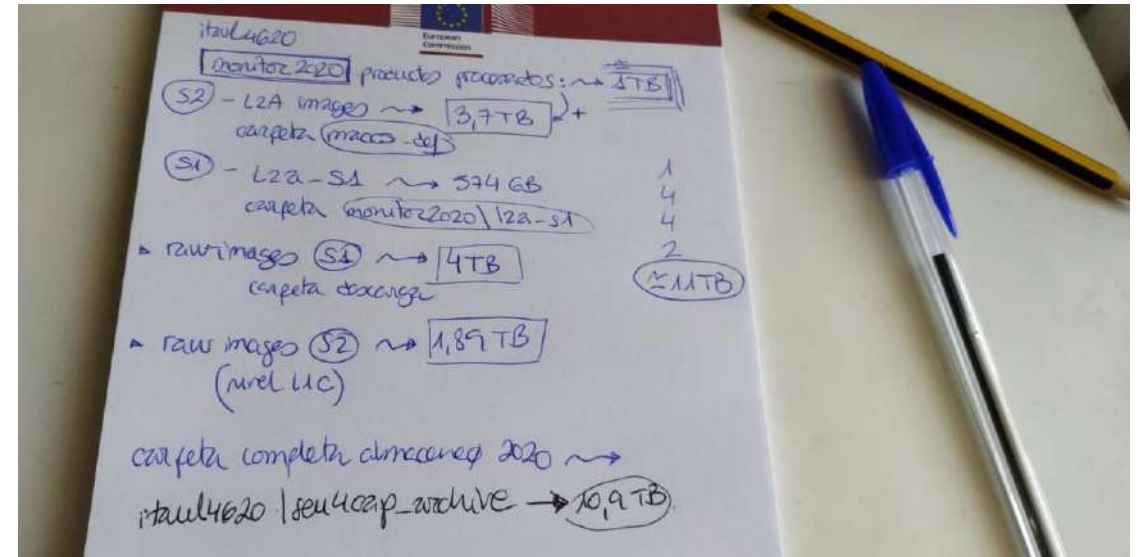 European
Commission
itaul4620
monitor2020 productos procesados: ≃ 1TB
S2 - L2A images 3,7TB +
carpeta maccs_def
S1 - L2a-S1 574 GB
carpeta monitor2020\l2a-s1
raw images S1 4TB
carpeta descarga
raw images S2 1,89TB
(nivel L1C)
1
4
4
2
≃11TB
carpeta completa 2020
itaul4620\sen4cap_archive 10,9TB